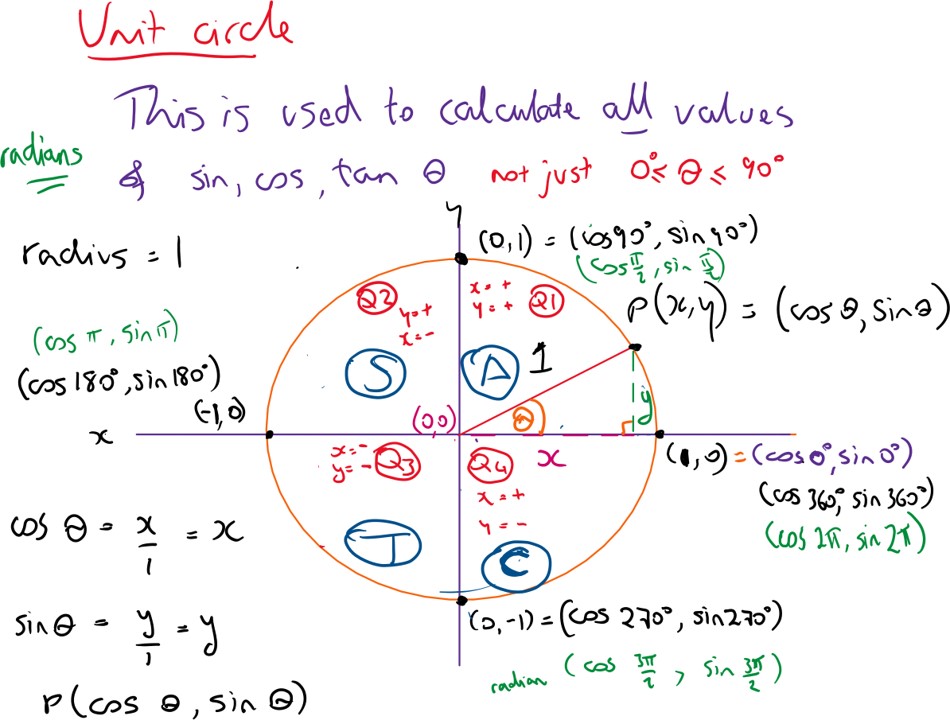 Unit circle
This is used to calculate all values
radians
of sin, cos, tan θ not just 0° ≤ θ ≤ 90°
y
radius = 1
(0,1) = (cos90°, sin90°)
(cos π/2, sin π/2)
Q2
y=+
x=-
x=+
y=+
Q1
P(x,y) = (cosθ, sinθ)
(cos π, sin π)
(cos180°, sin180°)
S
A
1
y
(-1,0)
(0,0)
θ
x
(1,0) = (cos0°, sin0°)
x=-
y=-
Q3
Q4
x
(cos360°, sin360°)
x=+
y=-
(cos 2π, sin 2π)
cos θ = x/1 = x
T
C
sinθ = y/1 = y
(0,-1) = (cos 270°, sin270°)
radian (cos 3π/2, sin 3π/2)
P(cos θ, sin θ)